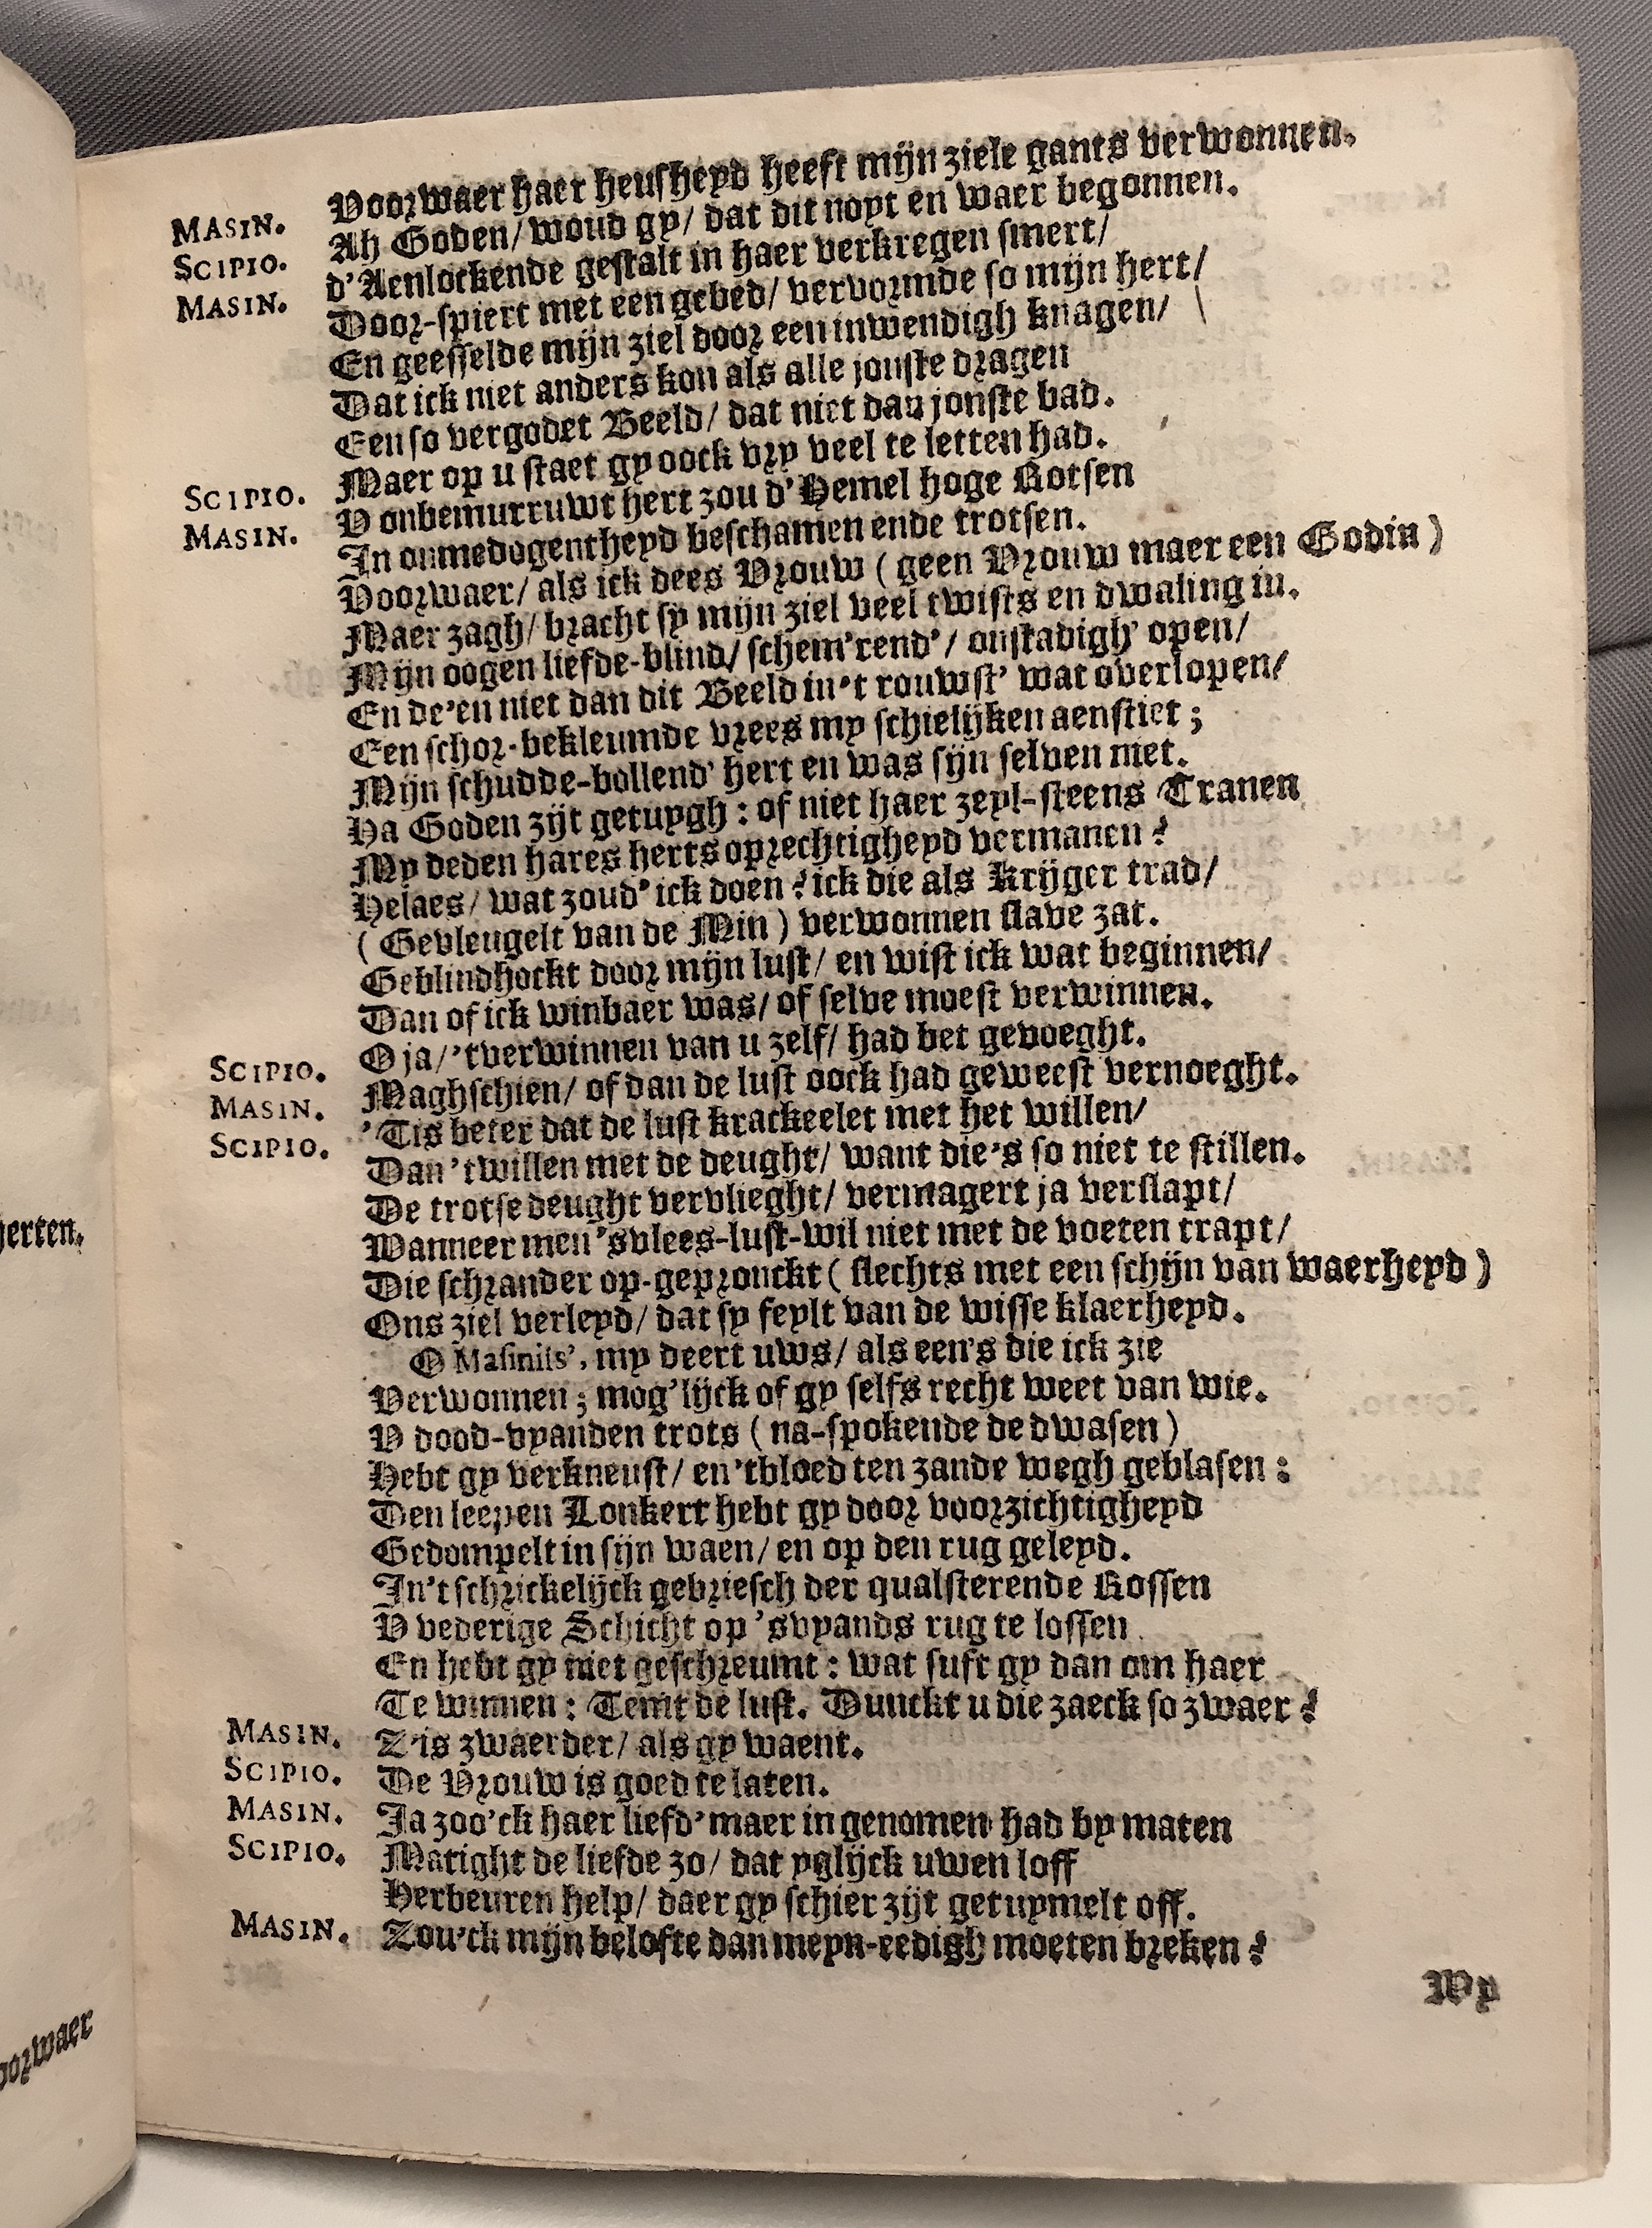 Voorwaer haer heusheyd heeft mijn ziele gants verwonnen.
MASIN. Ah Goden/ woud gy/ dat dit noyt en waer begonnen.
SCIPIO. d'Aenlockende gestalt in haer verkregen smert/
MASIN. Door-spiert met een gebed/ vervormde so mijn hert/
En geesselde mijn ziel door een inwendigh knagen/
Dat ick niet anders kon als alle jonste dragen
Een so vergodet Beeld/ dat niet dan jonste bad.
SCIPIO. Maer op u staet gy oock vry veel te letten had.
MASIN. V onbemurruwt hert zou d'Hemel hoge Rotsen
In onmedogentheyd beschamen ende trotsen.
Voorwaer/ als ick dees Vrouw ( geen Vrouw maer een Godin )
Maer zagh/ bracht sy mijn ziel veel twists en dwaling in.
Mijn oogen liefde-blind/ schem'rend'/ onstadigh' open/
En de'en niet dan dit Beeld in't rouwst' wat overlopen/
Een schor-bekleumde vrees my schielijken aenstiet ;
Mijn schudde-bollend' hert en was sijn selven niet.
Ha Goden zijt getuygh : of niet haer zeyl-steens Tranen
My deden hares herts oprechtigheyd vermanen ?
Helaes/ wat zoud' ick doen ? ick die als Krijger trad/
( Gevleugelt van de Min ) verwonnen slave zat.
Geblindhockt door mijn lust/ en wist ick wat beginnen/
Dan of ick winbaer was/ of selve moest verwinnen.
SCIPIO. O ja/ 'tverwinnen van u zelf/ had bet gevoeght.
MASIN. Maghschien/ of dan de lust oock had geweest vernoeght.
SCIPIO. 'Tis beter dat de lust krackeelet met het willen/
Dan 'twillen met de deught/ want die's so niet te stillen.
De trotse deught vervlieght/ vermagert ja verslapt/
Wanneer men 'svlees-lust-wil niet met de voeten trapt/
Die schrander op-gepronckt ( slechts met een schijn van waerheyd )
Ons ziel verleyd/ dat sy feylt van de wisse klaerheyd.
O Masinis', my deert uws/ als een's die ick zie
Verwonnen ; mog'lijck of gy selfs recht weet van wie.
V dood-vyanden trots ( na-spokende de dwasen )
Hebt gy verkneust/ en 'tbloed ten zande wegh geblasen :
Den leepen Lonkert hebt gy door voorzichtigheyd
Gedompelt in sijn waen/ en op den rug geleyd.
In't schrickelijck gebriesch der qualsterende Rossen
V vederige Schicht op 'svyands rug te lossen
En hebt gy niet geschreumt : wat suft gy dan om haer
Te winnen : Temt de lust. Dunckt u die zaeck so zwaer ?
MASIN. Z'is zwaerder/ als gy waent.
SCIPIO. De Vrouw is goed te laten.
MASIN. Ja zoo'ck haer liefd' maer in genomen had by maten
SCIPIO. Matight de liefde zo/ dat yglijck uwen loff
Herbeuren help/ daer gy schier zijt getuymelt off.
MASIN. Zou'ck mijn belofte dan meyn-eedigh moeten breken ?
Wy
herten.
oorwaer